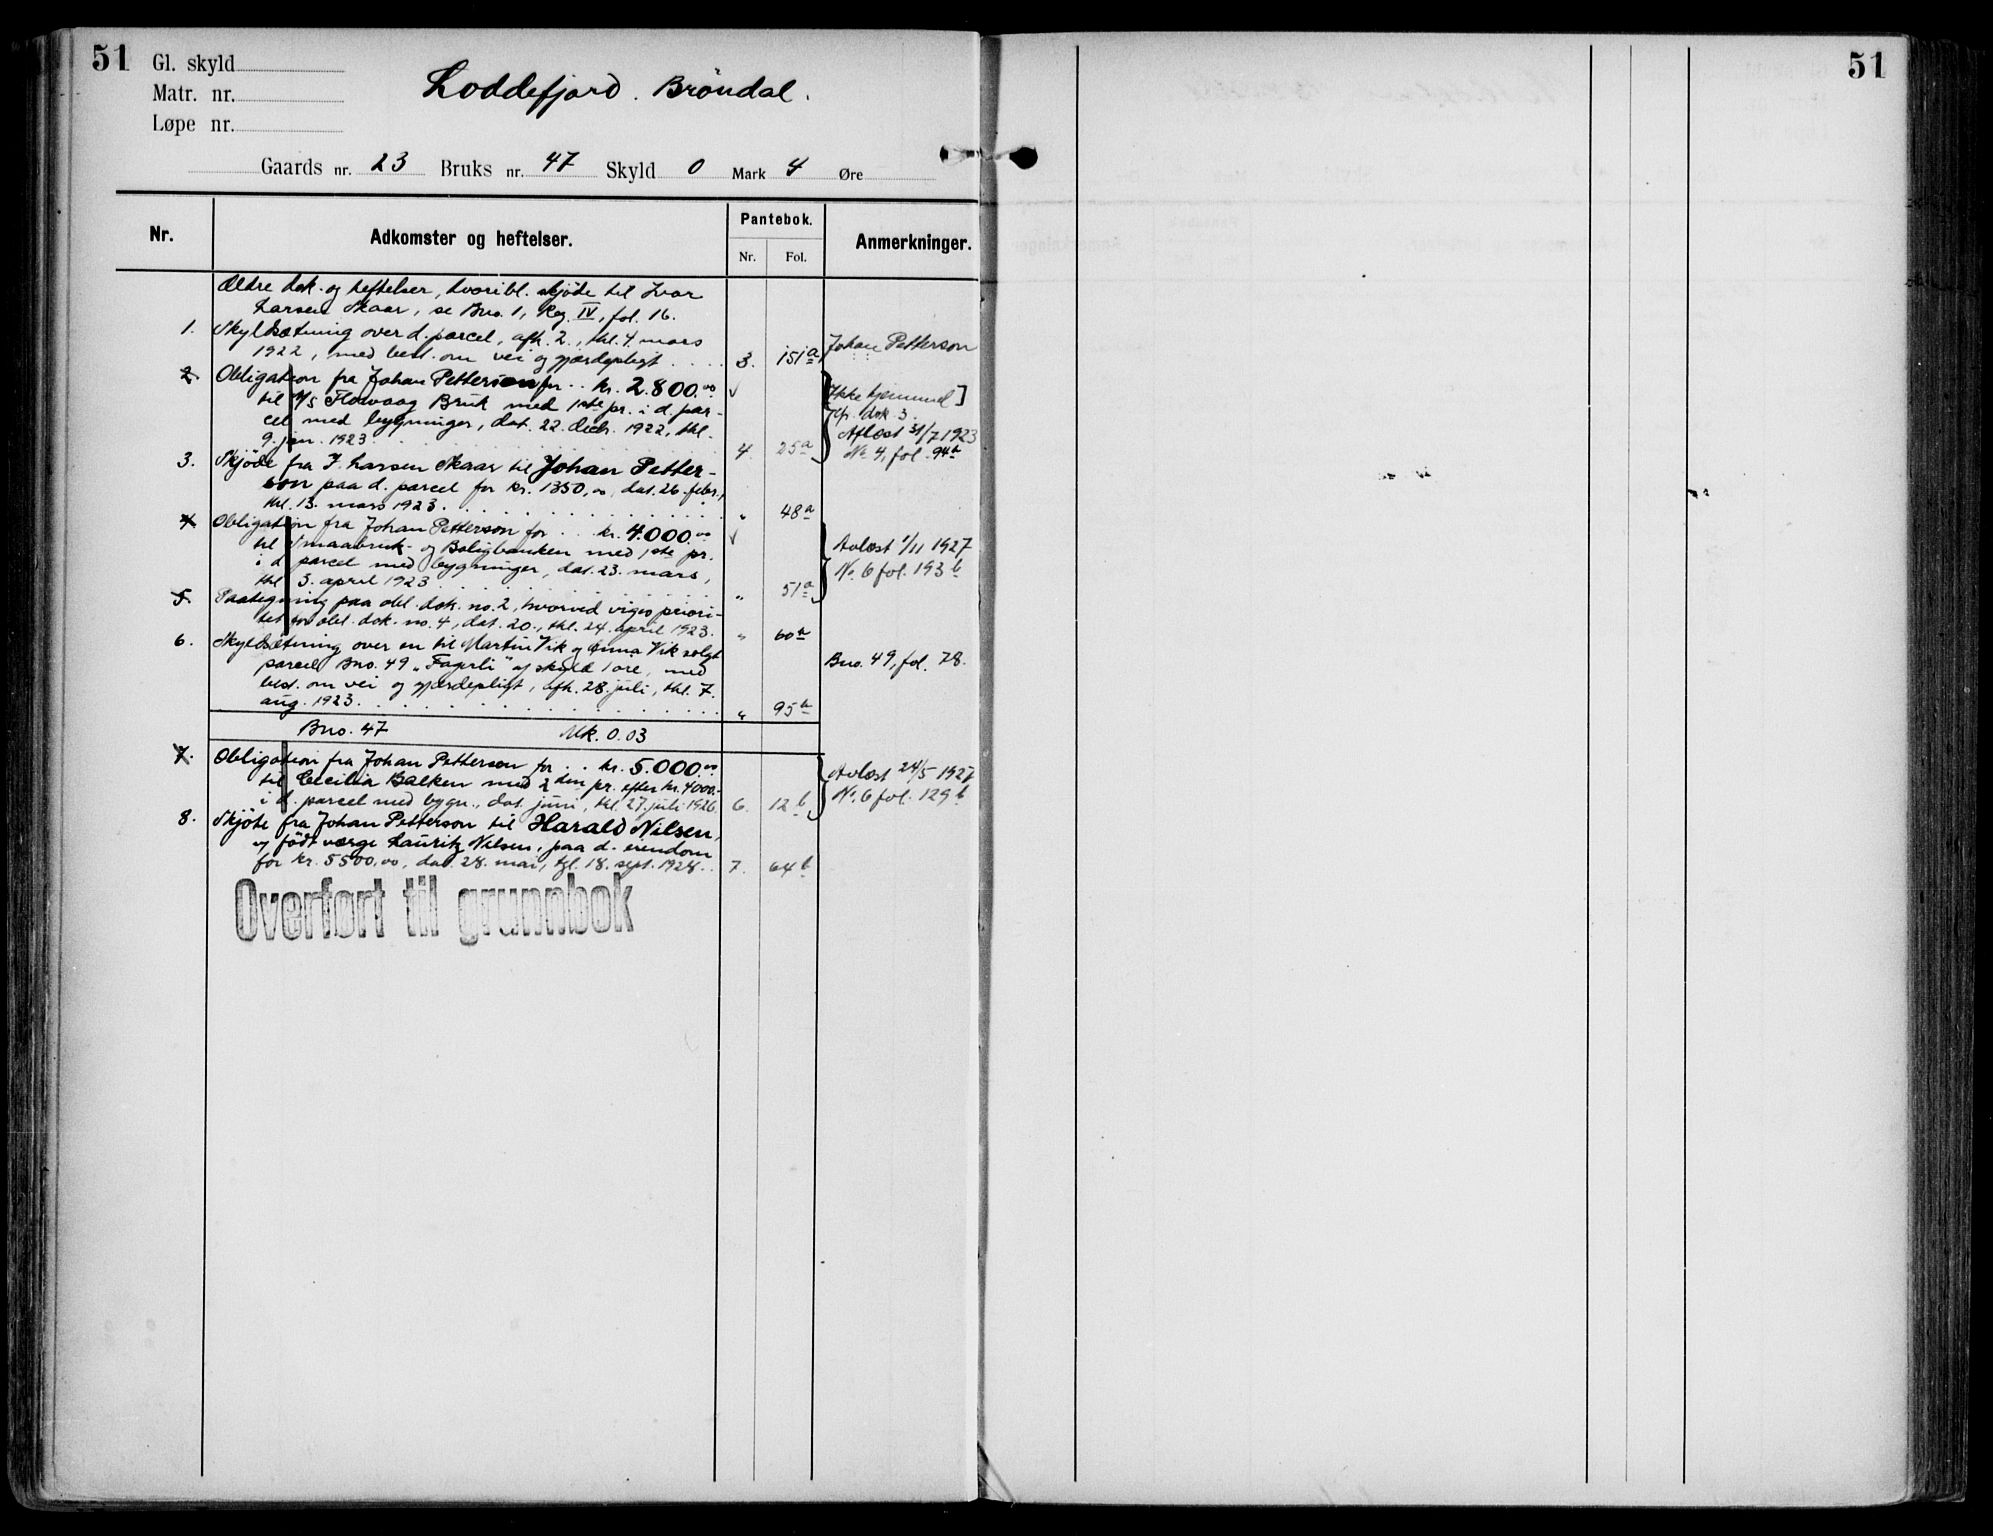 51
51
Gl. skyld
Matr. nr.
Løpe nr.
Loddefjord. Bröndal.
Gaards nr. 23 Bruks nr. 47 Skyld 0 Mark 4 Øre
Nr. Adkomster og heftelser. Pantebok. Anmerkninger.
Nr. Fol.
Ældre dok. og heftelser, hvoribl. skjöde til Ivar
Larsen Skaar, se Bno. 1, Reg. IV, fol. 16.
1. Skyldsætning over d. parcel, afh. 2., thl. 4. mars
1922, med best. om vei og gjærdepligt . . . . 3. 151a Johan Petterson
2. Obligation fra Johan Petterson for . . kr. 2.800.00
til A/S Flowaag Bruk med 1ste pr. i d. par-
cel med bygninger, dat. 22. decbr. 1922, thl.
9. jan. 1923 . . . 4. 25a
[Ikke hjemmel]
cfr. dok. 3.
Aflæst 31/7 1923
No 4, fol. 94b
3. Skjöde fra I. Larsen Skaar til Johan Petter-
son paa d. parcel for kr. 1350,00, dat. 26. febr.,
thl. 13. mars 1923 . . . " 48a
4. Obligation fra Johan Petterson for . . . kr. 4.000.00
til Smaabruk- og Boligbanken med 1ste pr.
i d. parcel med bygninger, dat. 23. mars,
thl. 3. april 1923 . . . " 51a
Avlæst 1/11 1927
No. 6 fol. 193b
5. Paategning paa obl. dok. no. 2, hvorved viges priori-
tet for obl. dok. no. 4, dat. 20., thl. 24. april 1923. " 60b
6. Skyldsætning over en til Martin Vik og Anna Vik solgt
parcel Bno. 49 "Fagerli" af skyld 1 öre, med
best. om vei og gjærdepligt, afh. 28. juli, thl. 7.
aug. 1923 . . . " 95b
Bno. 49, fol. 78.
Bno. 47 Mk. 0.03
7. Obligation fra Johan Petterson for . . kr. 5.000.00
til Cecilia Balken med 2den pr. efter kr. 4000.-
i d. parcel med bygn., dat. juni, thl. 27. juli 1926 6. 12b
Avlæst 24/5 1927
No. 6 fol. 129b
8. Skjöte fra Johan Petterson til Harald Nilsen,
v/ födt værge Lauritz Nilsen, paa d. eiendom
for kr. 5500,00, dat. 28. mai, tgl. 18. sept. 1928. . 7. 64b
Overført til grunnbok